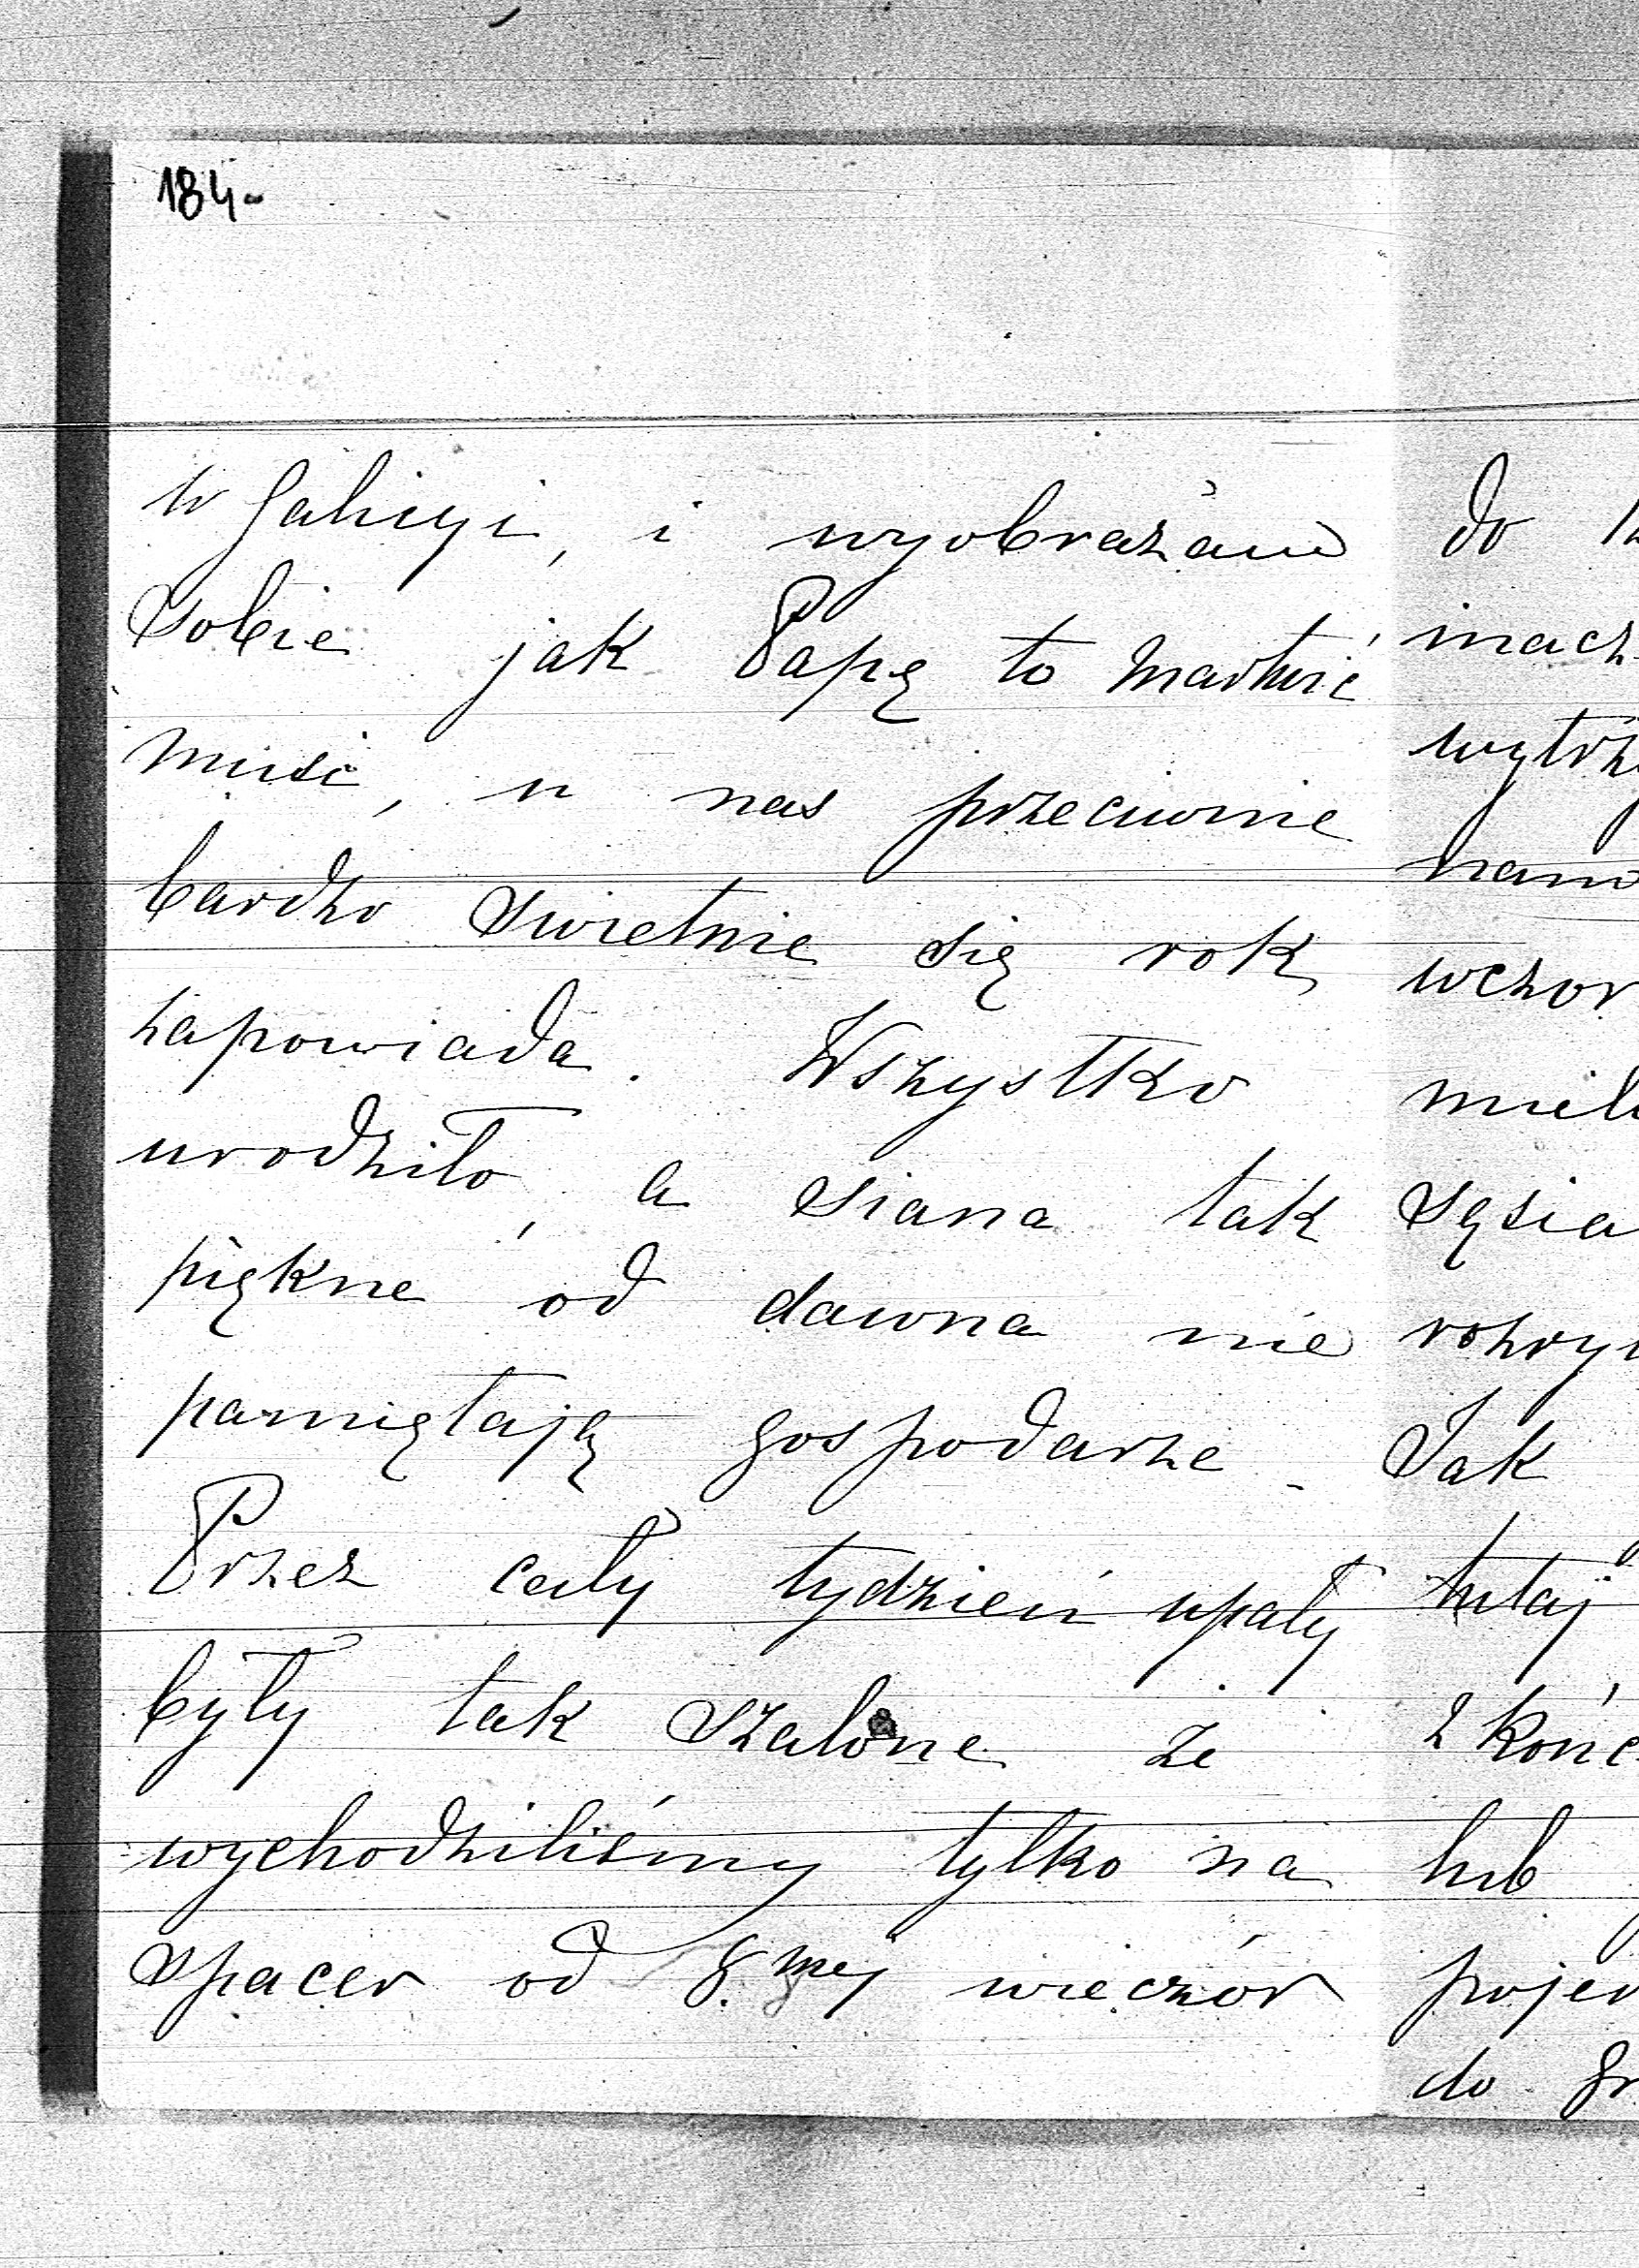 184-
w Galicyi, i wyobrażam
sobie jak Papę to martwić
musi, u nas przeciwnie
bardzo swietnie się rok
zapowiada. Wszystko
urodziło, a siana tak
piękne od dawna nie
pamiętają gospodarze.
Przez cały tydzień upały
były tak szalone że
wychodziliśmy tylko na
spacer od 8mej wieczór
do
inacz
wytrz
nam
wczor
miel
sąsia
rozry
Jak
tutaj
z końc
lub
pojev
do gr